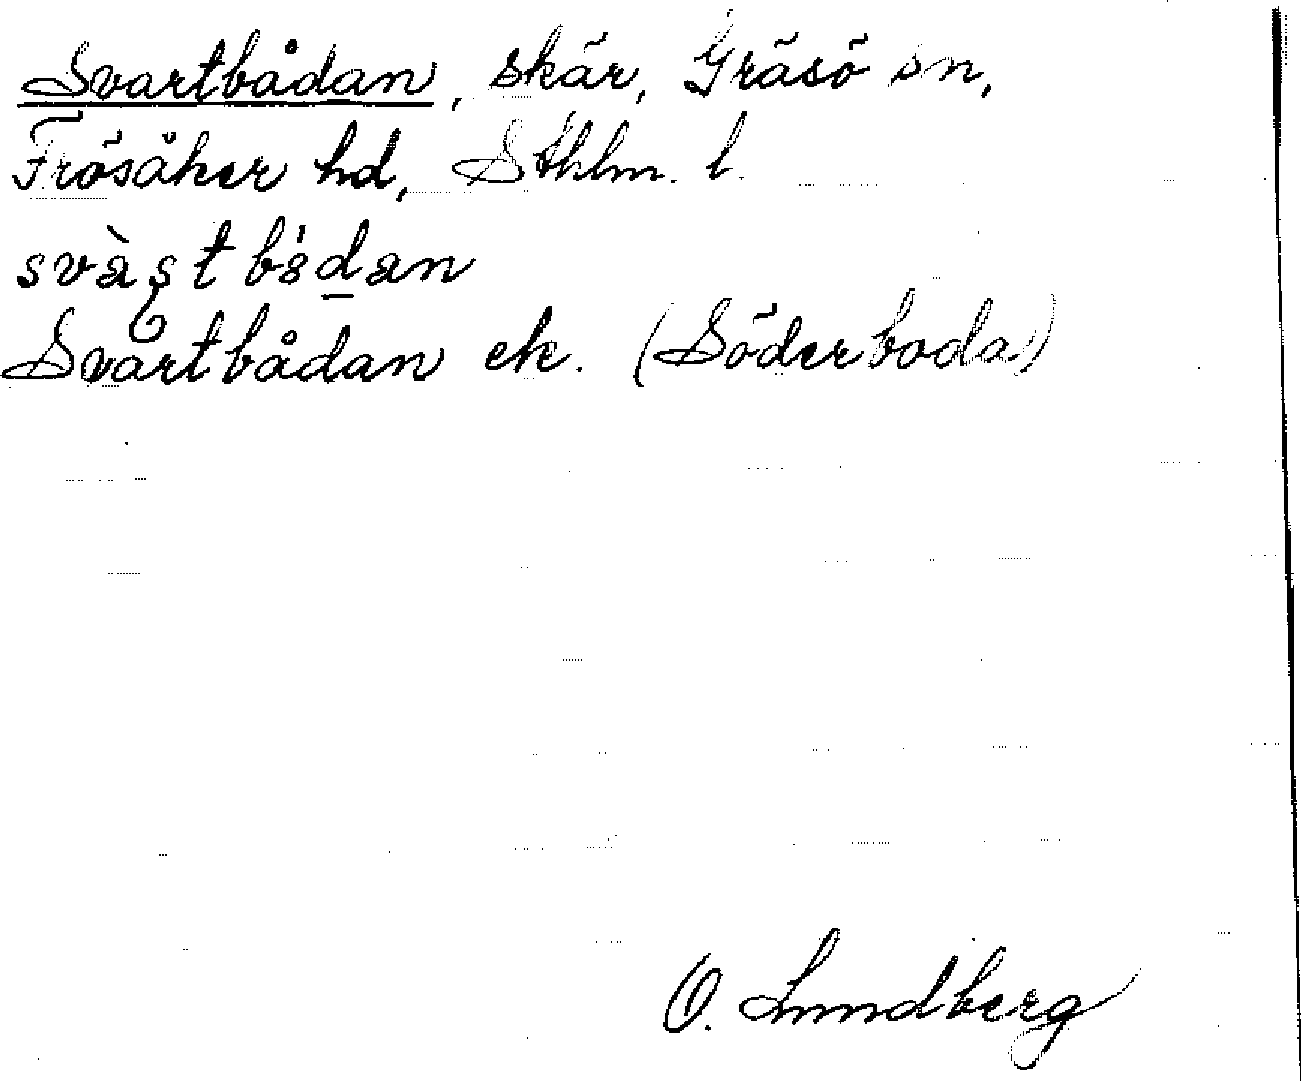 Svartbådan, skär, Gräsö sn,
Frösåker hd, Sthlm. l.
svàʂt bå̀dan
Svartbådan ek. (Söderboda)
O. Lundberg